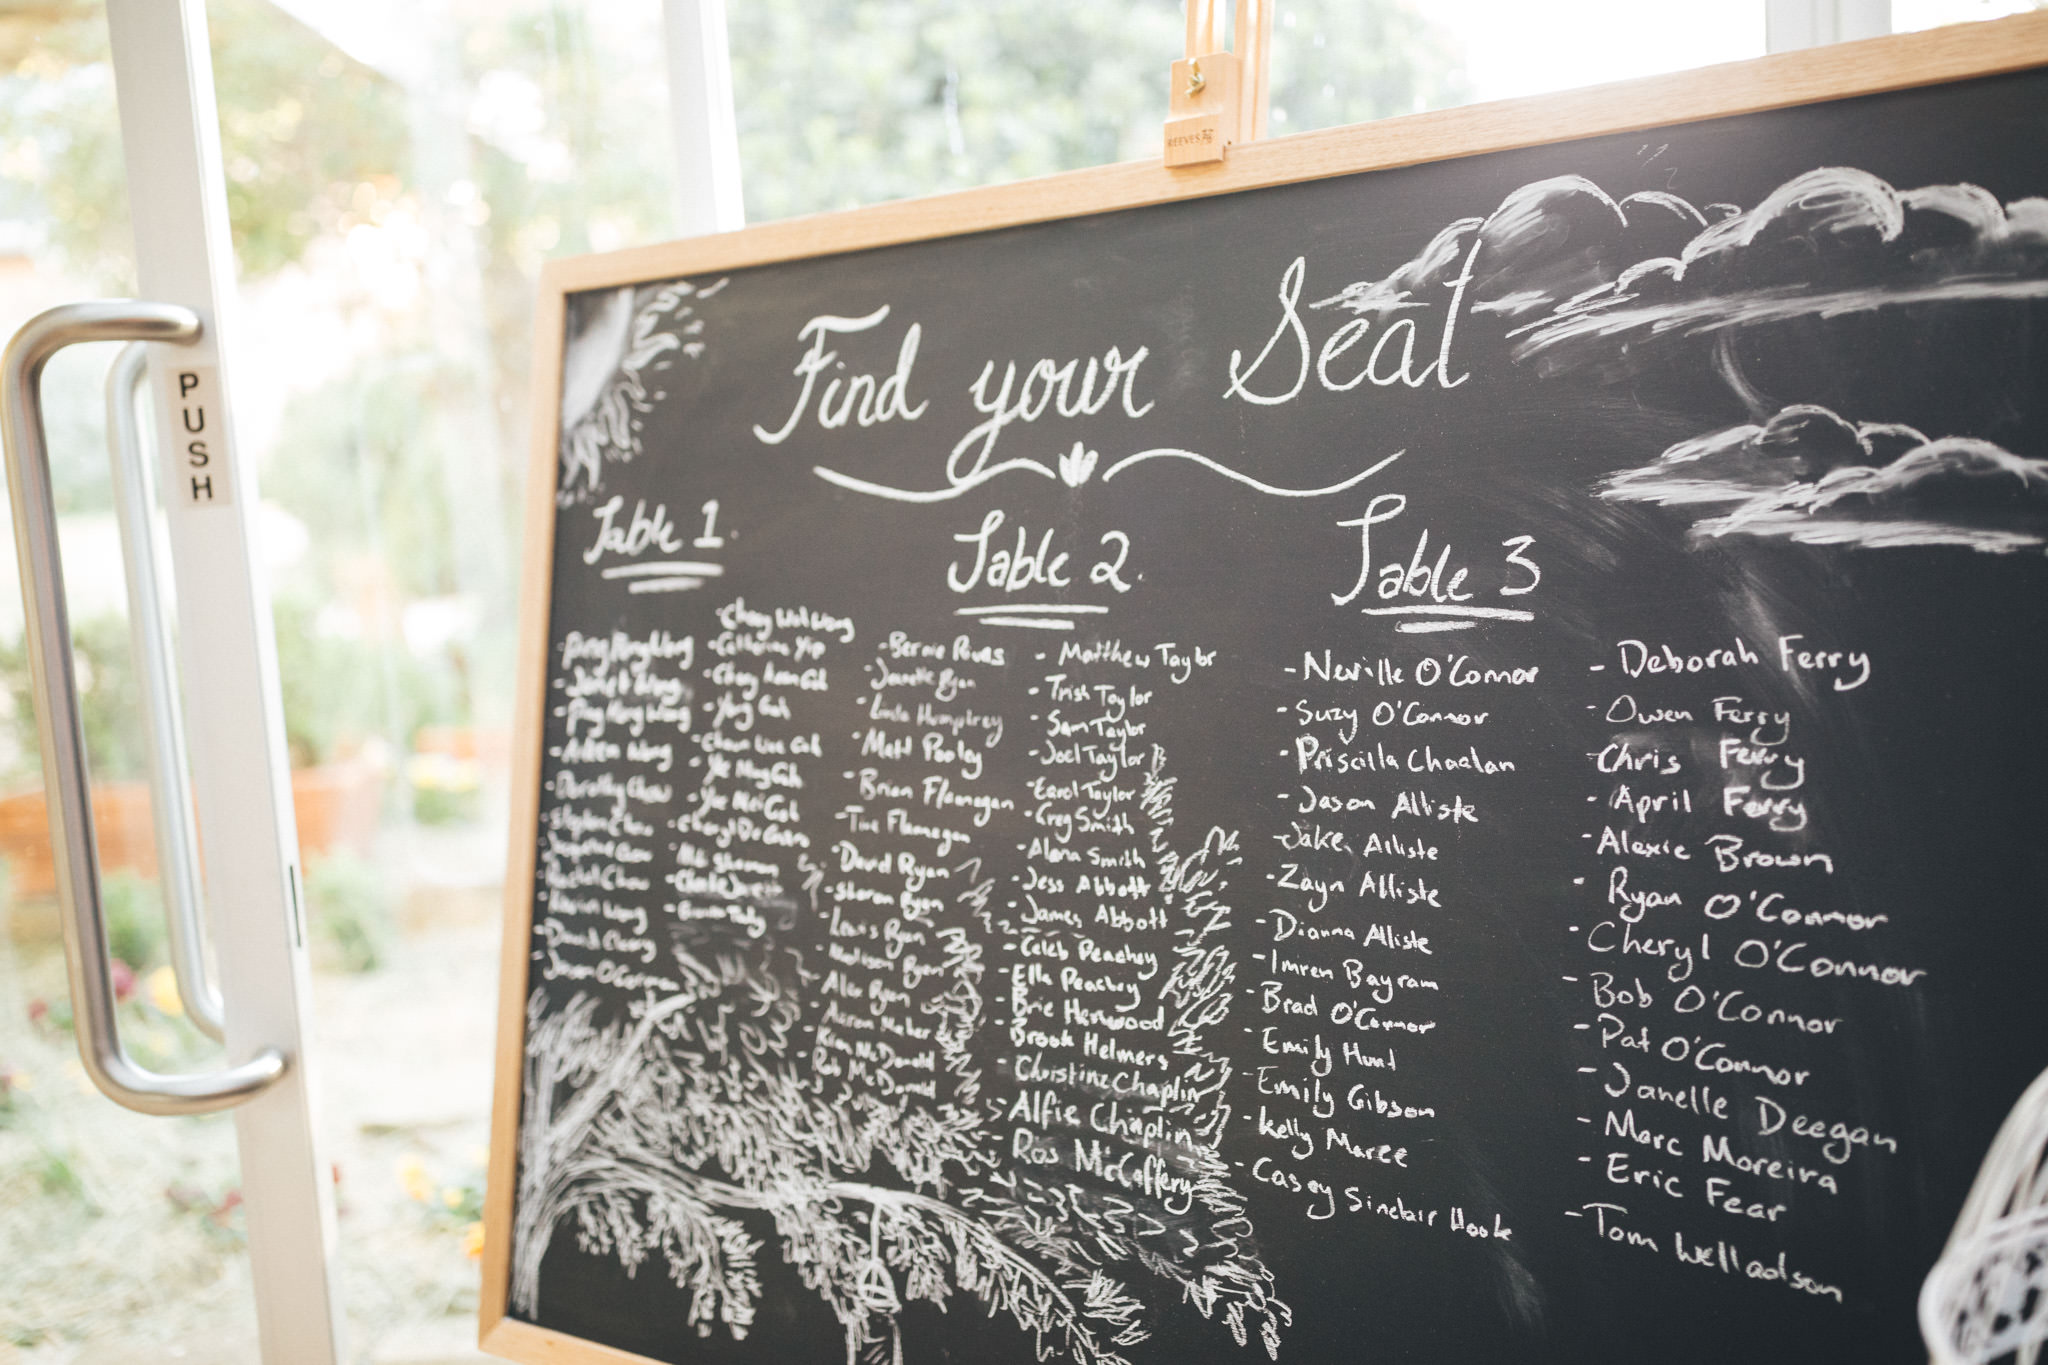 REEVES
PUSH
Find your Seat
Table 1.
Cheng Wal Wong
Catherine Yip
Yong Goh
Aileen Wong
Dorothy Chow
Stephen Chow
Rachel Chow
Kelvin Wong
David Cleary
Jason O'Gorman
Table 2.
- Bernie Rives
- Jeanette Ryan
- Linda Humphrey
- Matt Pooley
- Brian Flanagan
- Tina Flannagan
- David Ryan
- Sharon Ryan
- Lewis Ryan
- Madison Ryan
- Alex Ryan
- Aaron Maher
- Kim McDonald
- Rob McDonald
- Matthew Taylor
- Trish Taylor
- Sam Taylor
- Joel Taylor
- Carol Taylor
- Greg Smith
- Alana Smith
- Jess Abbott
- James Abbott
- Caleb Peachey
- Ella Peachey
- Brie Henwood
- Brook Helmers
- Christine Chaplin
- Alfie Chaplin
- Ros McCaffery
Table 3
- Neville O'Connor
- Suzy O'Connor
- Priscilla Chaalan
- Jason Alliste
- Jake Alliste
- Zayn Alliste
- Dianna Alliste
- Imren Bayram
- Brad O'Connor
- Emily Hunt
- Emily Gibson
- Kelly Maree
- Casey Sinclair Hook
- Deborah Ferry
- Owen Ferry
- Chris Ferry
- April Ferry
- Alexie Brown
- Ryan O'Connor
- Cheryl O'Connor
- Bob O'Connor
- Pat O'Connor
- Janelle Deegan
- Marc Moreira
- Eric Fear
- Tom Welladson